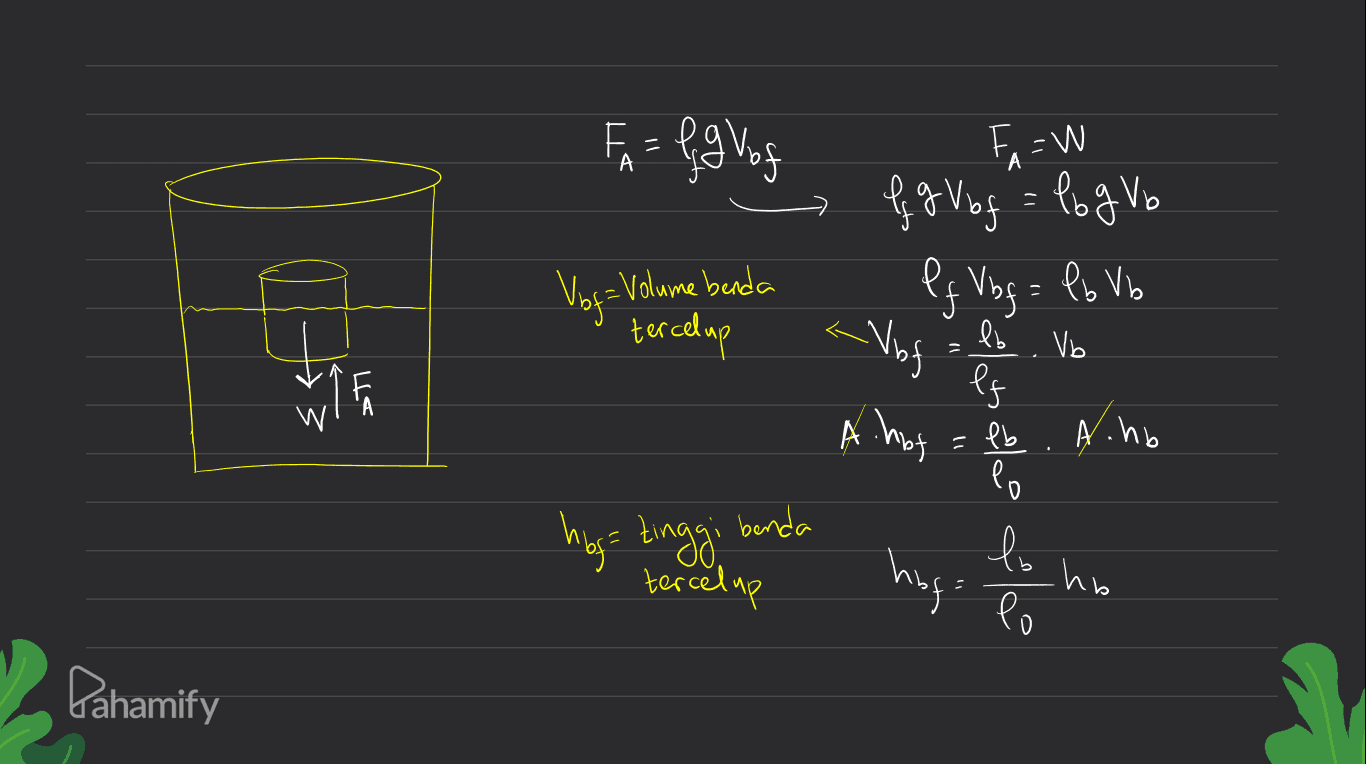 F_A = ρ_f g V_bf
F_A = W
ρ_f g V_bf = ρ_b g V_b
V_bf = Volume benda
tercelup
ρ_f V_bf = ρ_b V_b
V_bf = ρ_b / ρ_f . V_b
A . h_bf = ρ_b / ρ_0 . A . h_b
h_bf = tinggi benda
tercelup
h_bf = ρ_b / ρ_0 h_b
W F_A
Pahamify